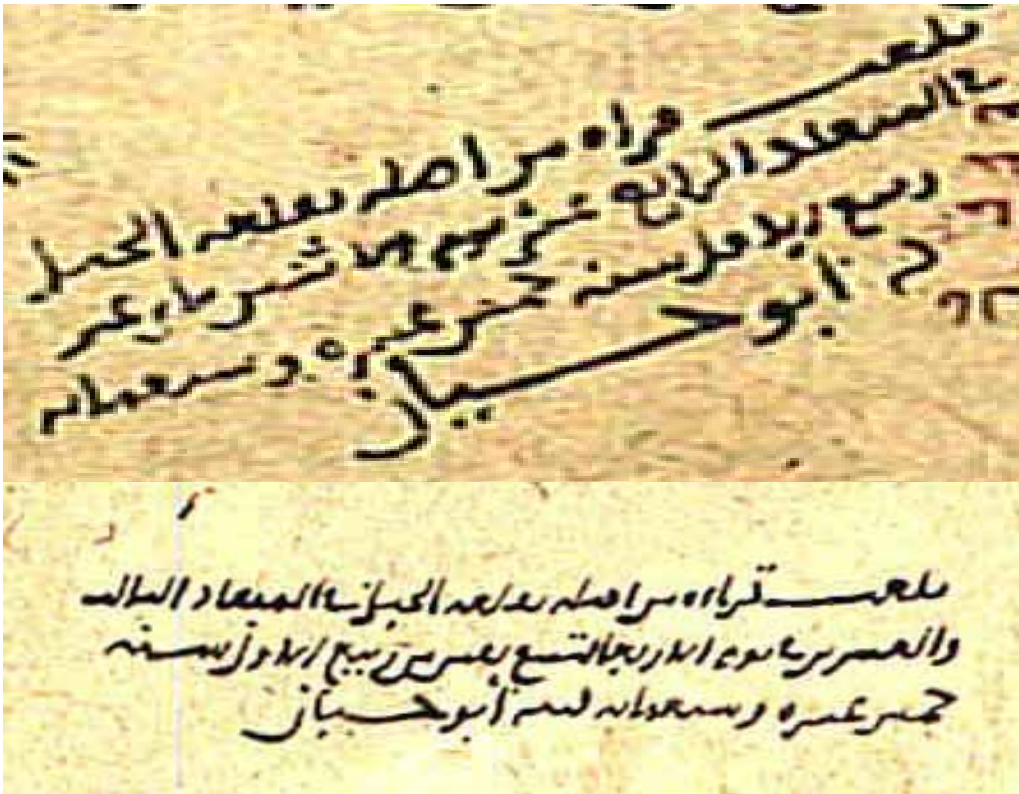 بلغت قراه من اصله بقلعة الجبل
في الميعاد الرابع عشر يوم الاثنين عشر
ربيع الاول سنة خمس عشرة وسبعمائة
أبو حيان
بلغت قراءة من اصله بقلعة الجبل في الميعاد الثالث
والعشرين يوم الاربعا لتسع بقين من ربيع الاول سنة
خمس عشرة وسبعمائة أبو حيان